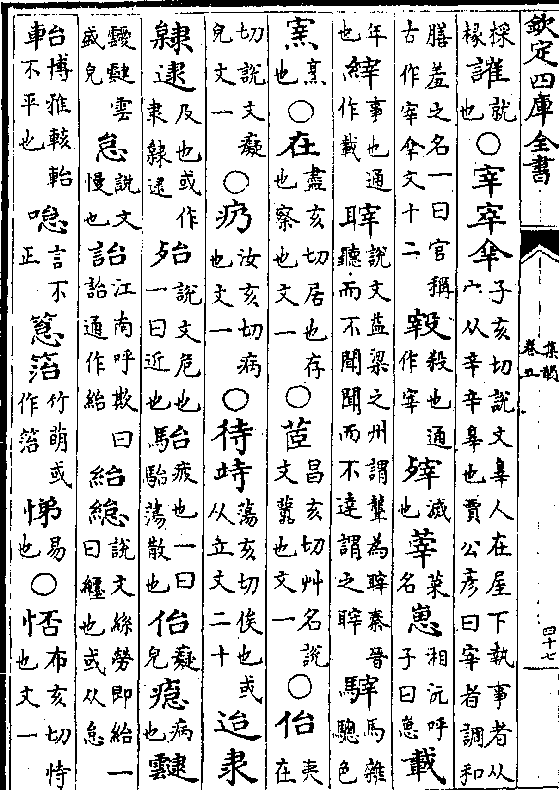 欽定四庫全書
集韻
卷五
四十七
採椽也○宰𡩀伞子亥切說文辠人在屋下執事者从宀从辛辛辠也賈公彥曰宰者調和
膳羞之名一曰官稱古作宰伞文十二殺也通作宰滅也莘菜名崽湘沅呼子曰崽載
年也縡事也通作載䏁說文益梁之州謂聾為䏁秦晉聽而不聞聞而不達謂之䏁騂馬雜驄色
烹也○在盡亥切居也存也察也文一○茝昌亥切艸名說文虈也文一○佁夷在
切說文癡皃文一○疓汝亥切病也文一○待跱蕩亥切俟也或从立文二十迨隶
隸逮及也或作隶隸逮殆說文危也一曰近也駘疲也一曰駘蕩散也佁癡皃㾂病也靆
靉靆雲盛皃怠說文慢也詒江南呼欺曰詒通作紿紿緿說文絲勞即紿一曰纏也或从怠
台博雅䡖軩車不平也言不正䈚箈竹萌或作箈悌易也○㤳布亥切恃也文一